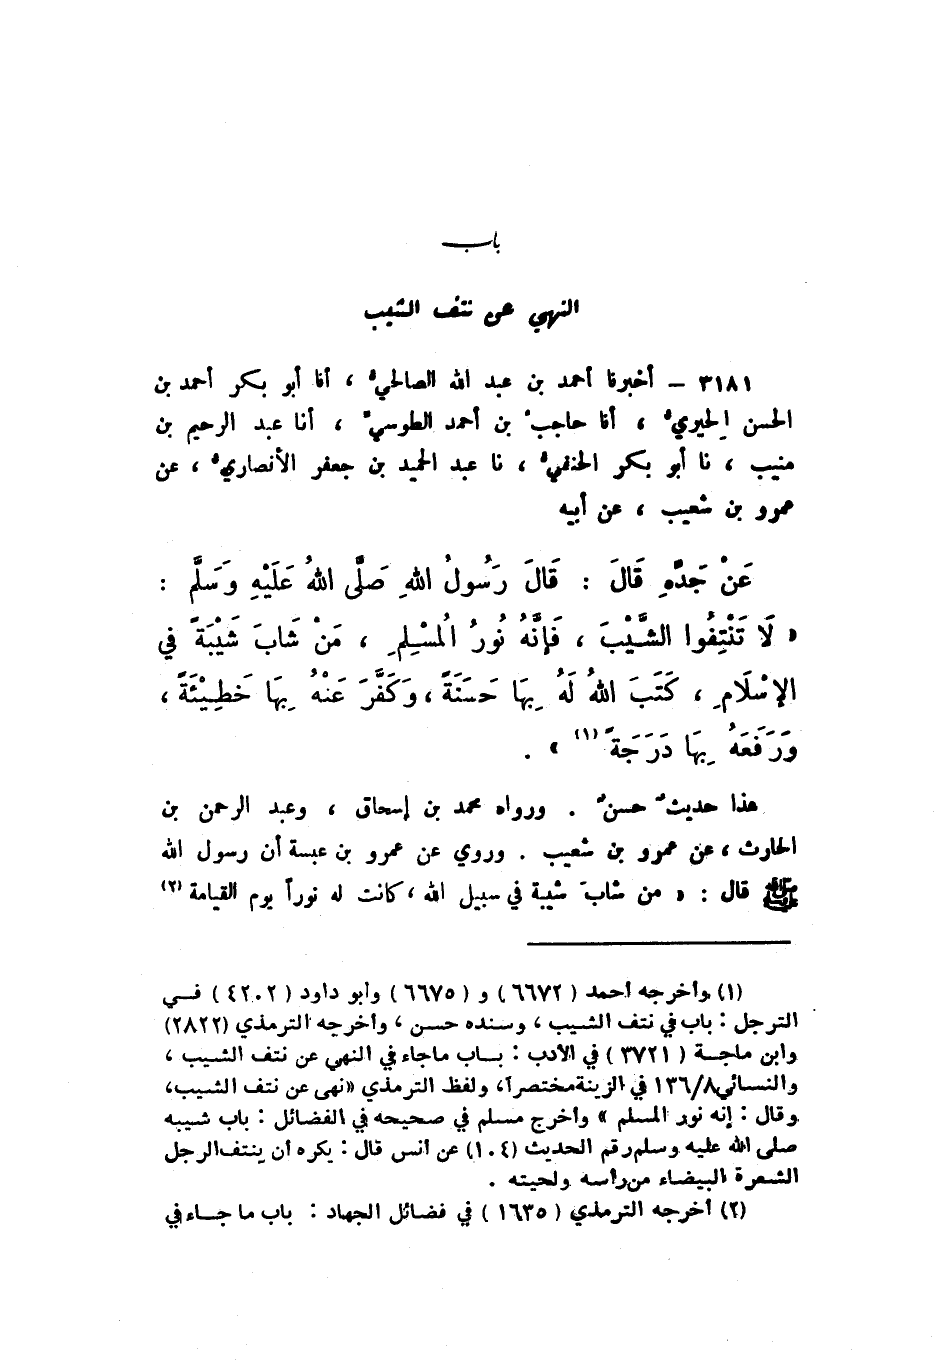 باب
النهي عن نتف الشيب
٣١٨١ – أخبرنا أحمد بن عبد الله الصالحيُّ ، أنا أبو بكر أحمد بن
الحسن الحِيريُّ ، أنا حاجبُ بن أحمد الطوسيُّ ، أنا عبد الرحيم بن
منيب ، نا أبو بكر الحنفيُّ ، نا عبد الحميد بن جعفر الأنصاريُّ ، عن
عمرو بن شعيب ، عن أبيه
عَنْ جَدِّهِ قَالَ : قَالَ رَسُولُ اللهِ صَلَّى اللهُ عَلَيْهِ وَسَلَّمَ :
« لَا تَنْتِفُوا الشَّيْبَ ، فَإِنَّهُ نُورُ الْمُسْلِمِ ، مَنْ شَابَ شَيْبَةً فِي
الإِسْلَامِ ، كَتَبَ اللهُ لَهُ بِهَا حَسَنَةً ، وَكَفَّرَ عَنْهُ بِهَا خَطِيْئَةً ،
وَرَفَعَهُ بِهَا دَرَجَةً (١) » .
هذا حديثٌ حسنٌ . ورواه محمد بن إسحاق ، وعبد الرحمن بن
الحارث ، عن عمرو بن شعيب . وروي عن عمرو بن عبسة أن رسول الله
ﷺ قال : « من شابَ شيبة في سبيل الله ، كانت له نوراً يوم القيامة (٢)
(١) وأخرجه أحمد ( ٦٦٧٢ ) و ( ٦٦٧٥ ) وأبو داود ( ٤٢٠٢ ) فـي
الترجل : باب في نتف الشيب ، وسنده حسن ، وأخرجه الترمذي (٢٨٢٢)
وابن ماجـة ( ٣٧٢١ ) في الأدب : بـاب ماجاء في النهي عن نتف الشيب ،
والنسائي ١٣٦/٨ في الزينة مختصراً، ولفظ الترمذي «نهى عن نتف الشيب،
وقال : إنه نور المسلم » وأخرج مسلم في صحيحه في الفضائل : باب شيبه
صلى الله عليه وسلم رقم الحديث (١٠٤) عن أنس قال : يكره أن ينتف الرجل
الشعرة البيضاء من رأسه ولحيته .
(٢) أخرجه الترمذي ( ١٦٣٥ ) في فضائل الجهاد : باب ما جـاء في